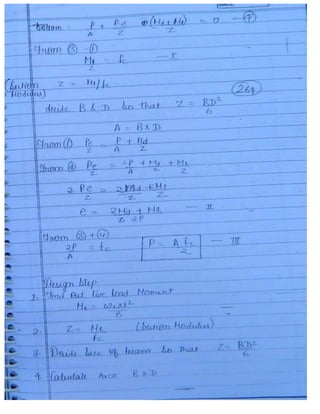 bottom = P/A + Pe/Z - (Md + Ml)/Z = 0 - (4)
From (3) - (1)
Ml/Z = fc — I
(Section Modulus) Z = Ml/fc
decide B & D So that Z = BD²/6
A = B x D
From (1) Pe/Z = P/A + Md/Z
From (4) Pe/Z = -P/A + Md/Z + Ml/Z
2 Pe/Z = 2Md/Z + Ml/Z
e = 2Md + Ml / 2P — II
From (3) + (4)
2P/A = fc P = A fc/2 — III
Design Step
1. Find Out live load Moment
Ml = wl x l²/8
2. Z = Ml/fc (Section Modulus)
3 Decide Size of beam So that Z = BD²/6
4 Calculate Area B x D